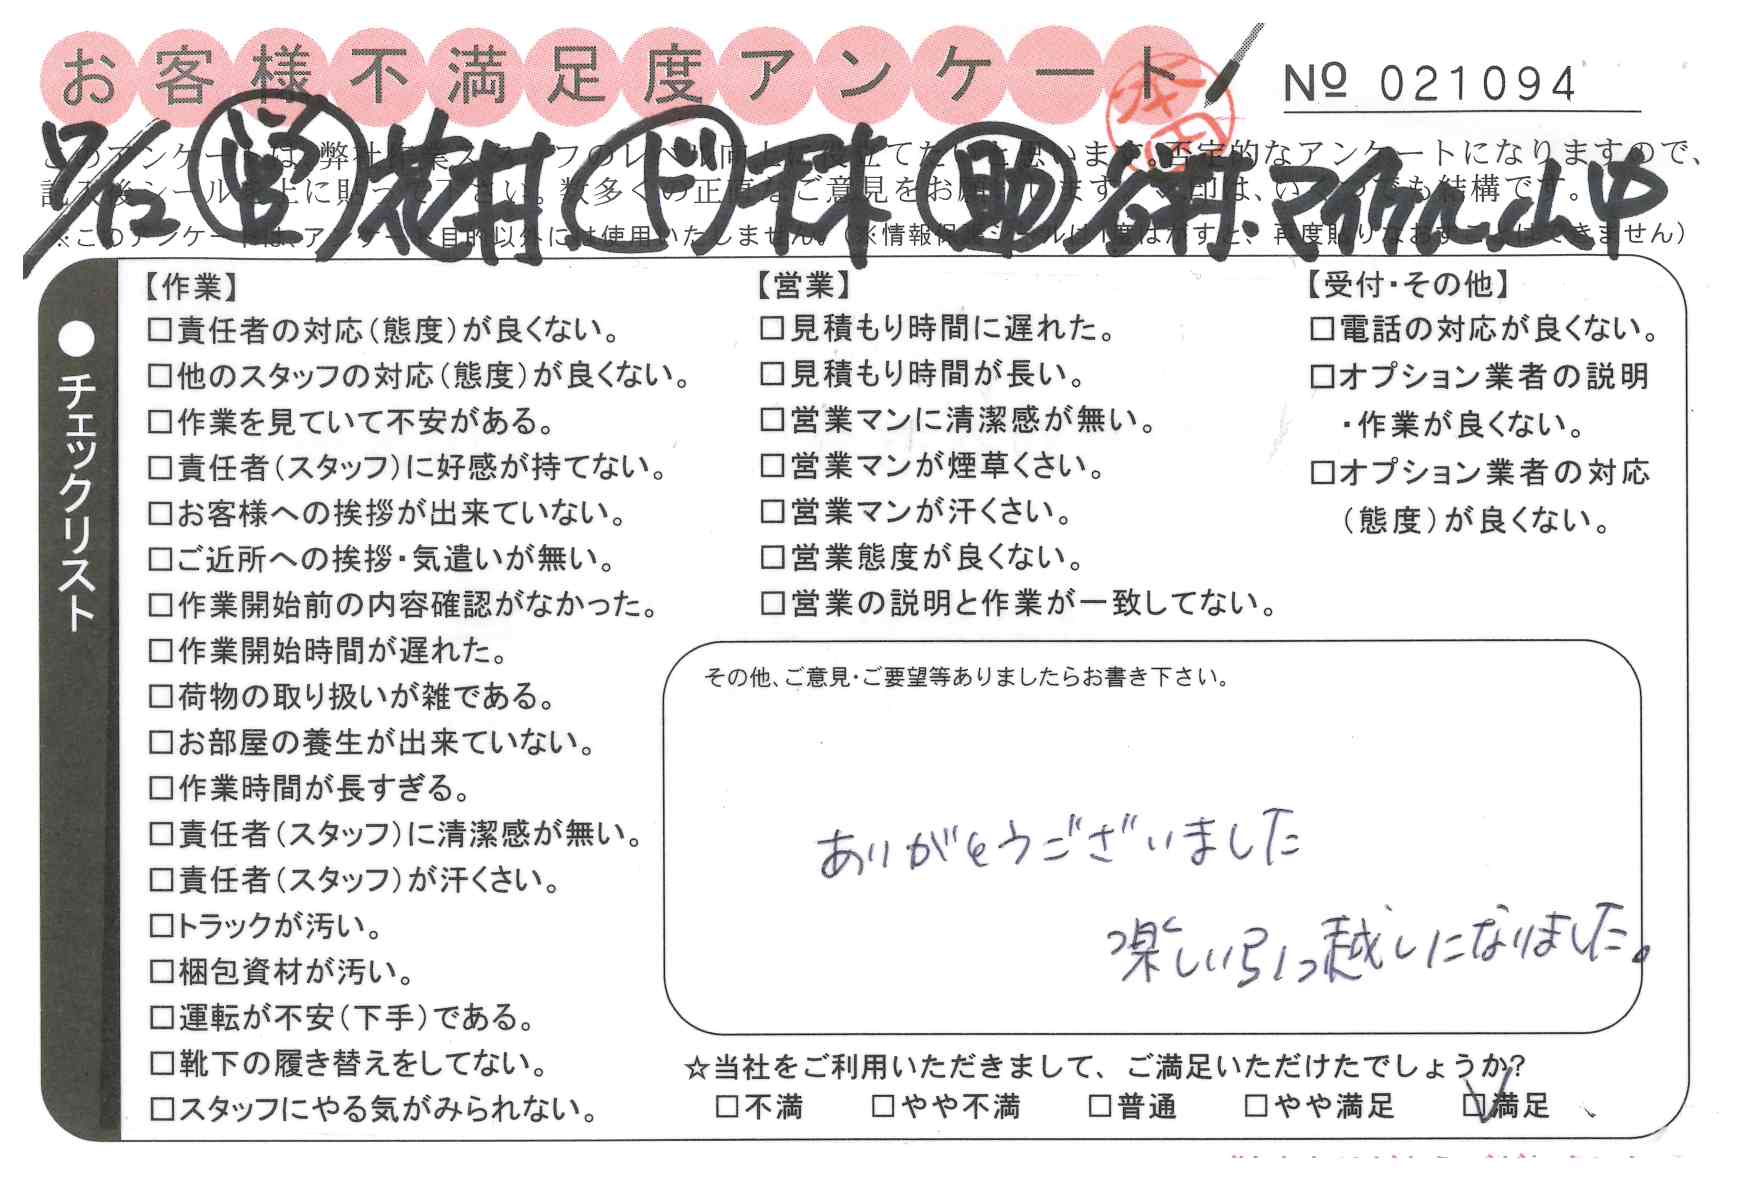 お客様不満足度アンケート
Nº 021094
このアンケートは、弊社作業スタッフのレベル向上に役立てたいと思います。否定的なアンケートになりますので、
記入後シールを上に貼って下さい。数多くの正直なご意見をお願いします。
※このアンケートは、アンケート目的以外には使用いたしません。(※情報保護シールは1度はがすと、再度貼りなおすことはできません)
営 花村 ド 助 谷村・マイケル・山中
本田
●チェックリスト
【作業】
□責任者の対応(態度)が良くない。
□他のスタッフの対応(態度)が良くない。
□作業を見ていて不安がある。
□責任者(スタッフ)に好感が持てない。
□お客様への挨拶が出来ていない。
□ご近所への挨拶・気遣いが無い。
□作業開始前の内容確認がなかった。
□作業開始時間が遅れた。
□荷物の取り扱いが雑である。
□お部屋の養生が出来ていない。
□作業時間が長すぎる。
□責任者(スタッフ)に清潔感が無い。
□責任者(スタッフ)が汗くさい。
□トラックが汚い。
□梱包資材が汚い。
□運転が不安(下手)である。
□靴下の履き替えをしてない。
□スタッフにやる気がみられない。
【営業】
□見積もり時間に遅れた。
□見積もり時間が長い。
□営業マンに清潔感が無い。
□営業マンが煙草くさい。
□営業マンが汗くさい。
□営業態度が良くない。
□営業の説明と作業が一致してない。
【受付・その他】
□電話の対応が良くない。
□オプション業者の説明
・作業が良くない。
□オプション業者の対応
(態度)が良くない。
その他、ご意見・ご要望等ありましたらお書き下さい。
ありがとうございました
楽しい引っ越しになりました。
☆当社をご利用いただきまして、ご満足いただけたでしょうか?
□不満 □やや不満 □普通 □やや満足 □満足